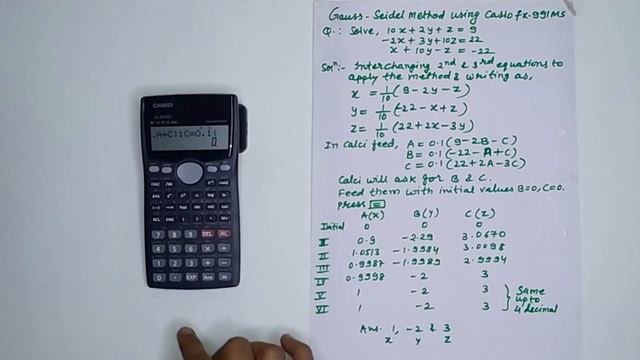 Gauss-Seidel Method using Casio fx-991MS
Q.: Solve, 10x+2y+z = 9
-2x+3y+10z = 22
x+10y-z = -22
Solⁿ:- Interchanging 2nd & 3rd equations to
apply the method & writing as,
x = 1/10 (9-2y-z)
y = 1/10 (-22-x+z)
z = 1/10 (22+2x-3y)
In Calci feed, A = 0.1(9-2B-C)
B = 0.1(-22-A+C)
C = 0.1(22+2A-3C)
Calci will ask for B & C.
Feed them with initial values B=0, C=0.
Press =
A(x) B(y) C(z)
Initial 0 0 0
0.9 -2.29 3.0670
II 1.0513 -1.9984 3.0098
III 0.9987 -1.9989 2.9994
IV 0.9998 -2 3
V 1 -2 3
VI 1 -2 3
Same
upto
4 decimal
Ans. 1, -2 & 3
x y z
CASIO
.A+C):C=0.1(
0.
DEL AC
7 8 9
4 5 6 × ÷
1 2 3 + -
0 . EXP Ans =